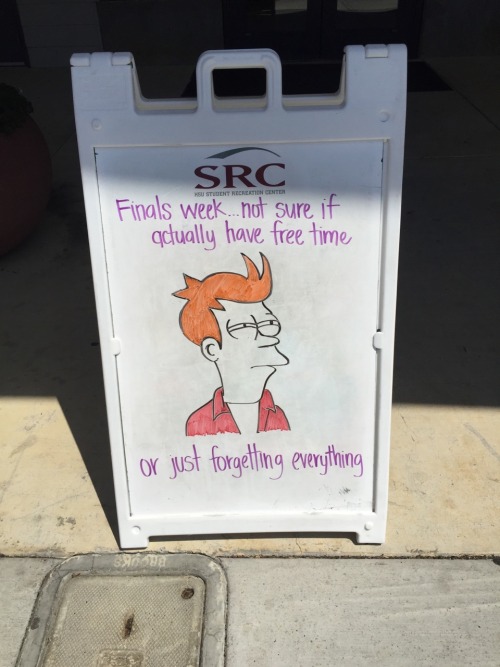 SRC
HSU STUDENT RECREATION CENTER
Finals week...not sure if
actually have free time
or just forgetting everything
BROOKS